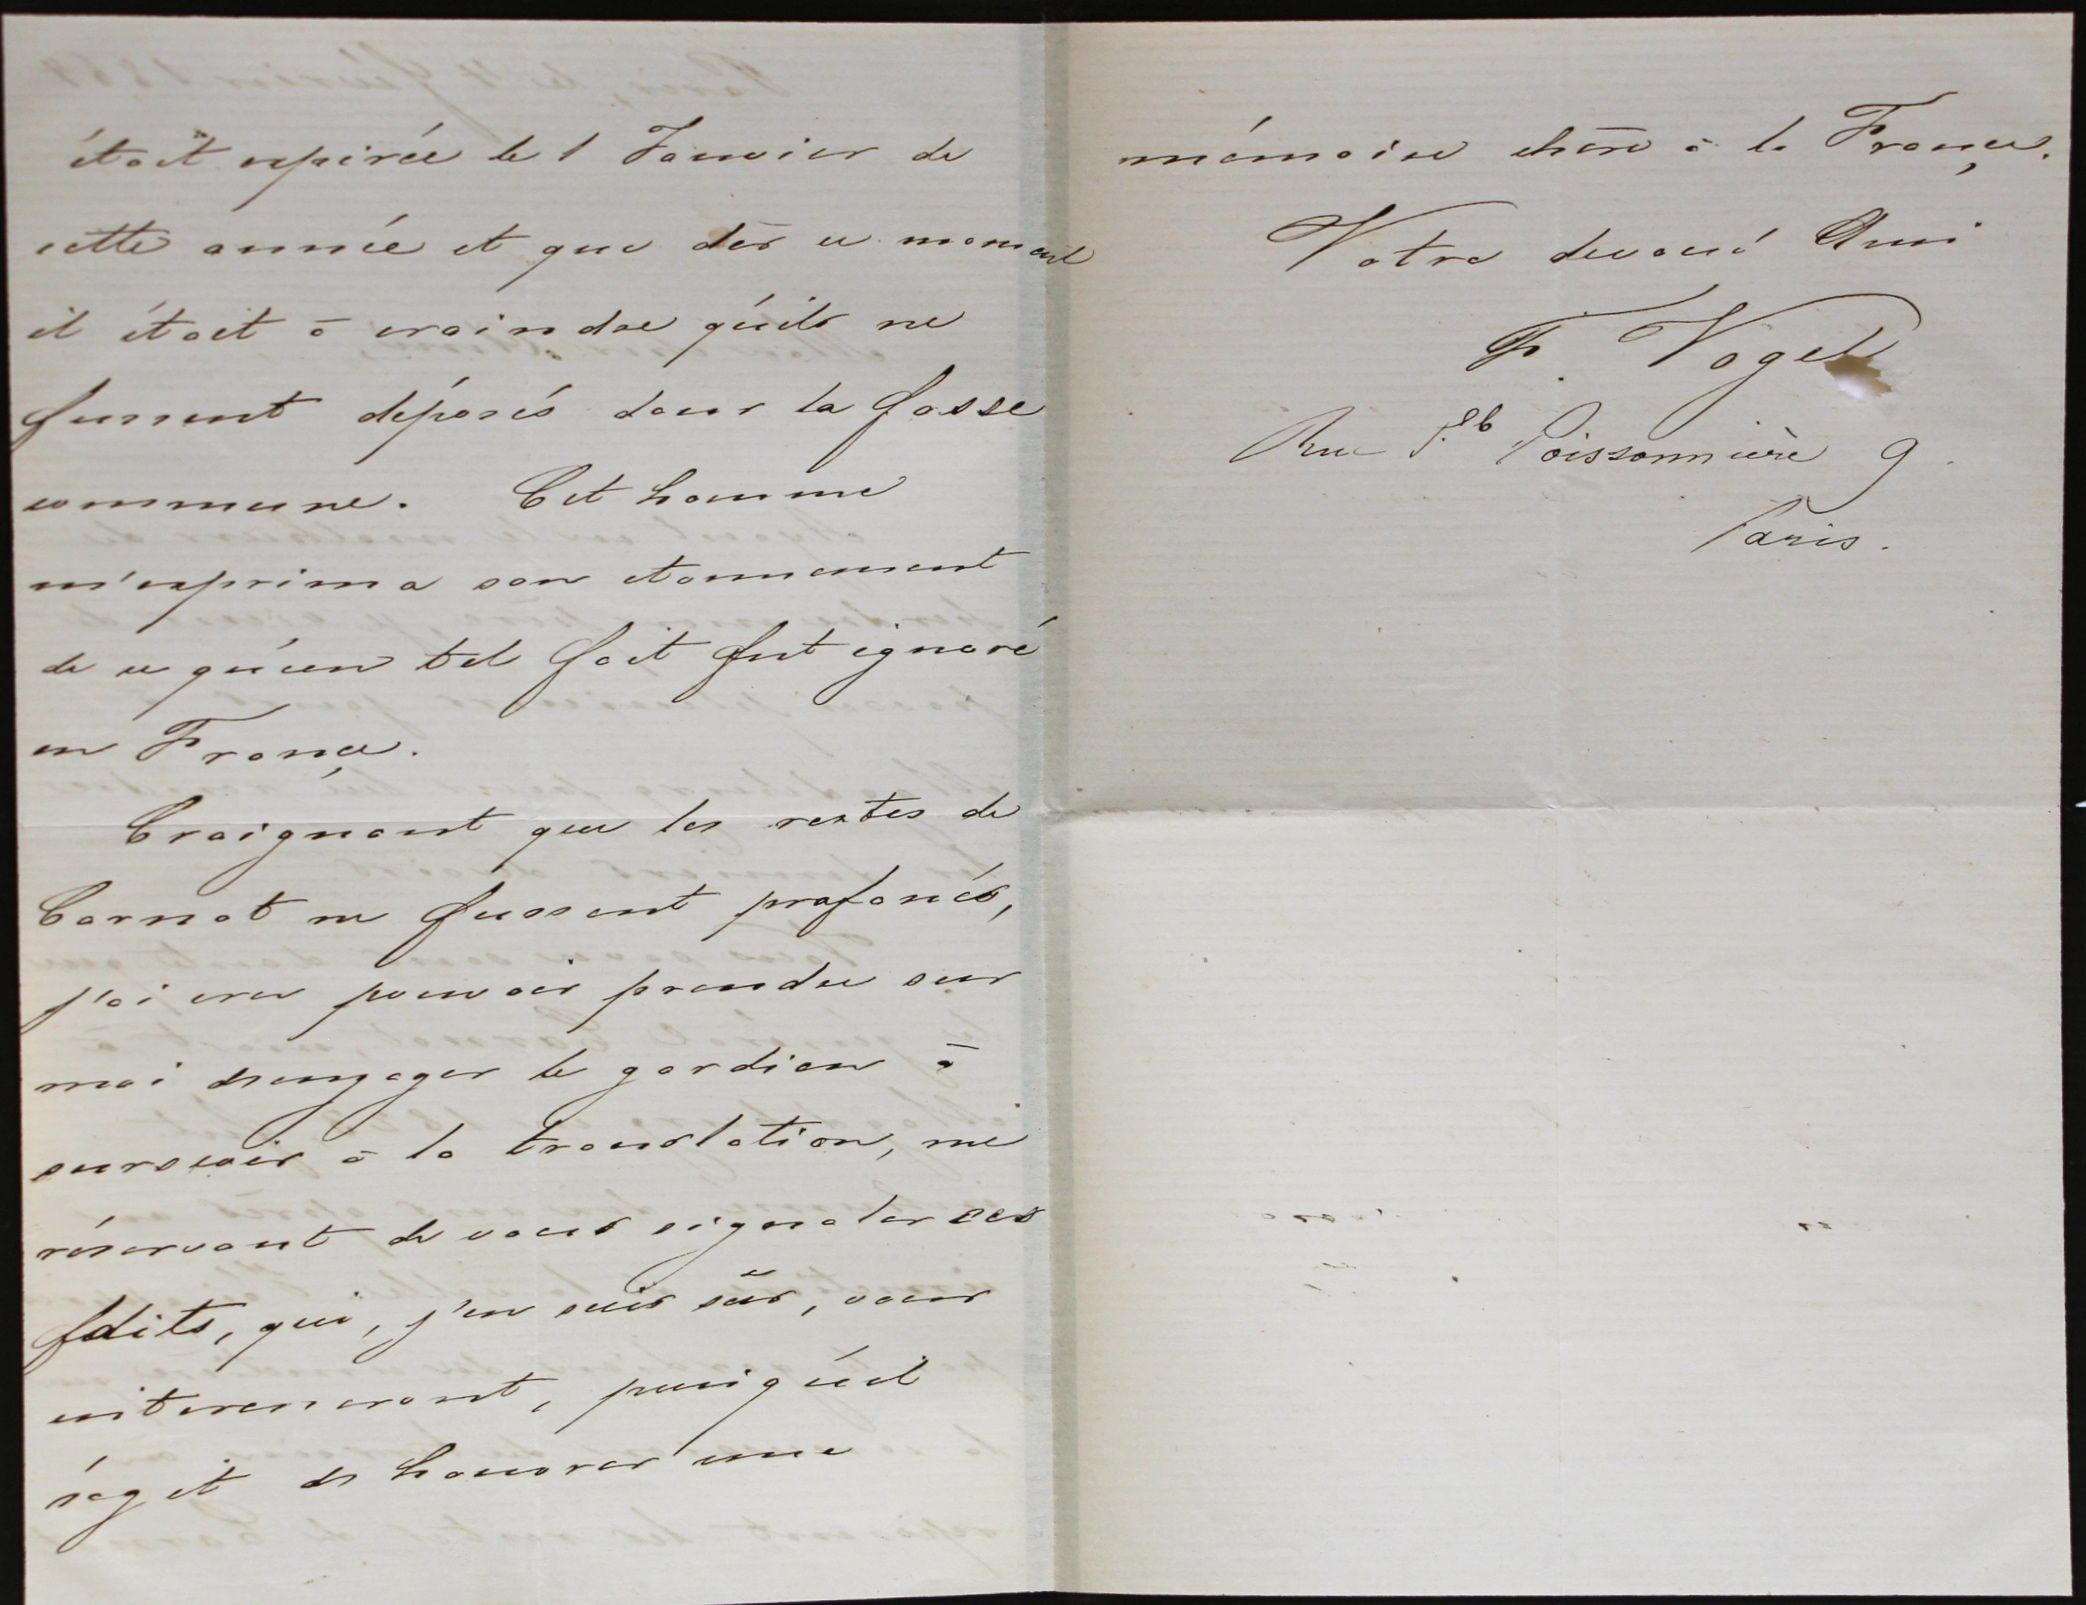 était expirée le 1 Janvier de
cette année et que dès ce moment
il était à craindre qu'ils ne
fussent déposés dans la fosse
commune. Cet homme
m'exprima son etonnement
de ce qu'un tel fait fut ignoré
en France.
Craignant que les restes de
Carnot ne fussent profanés,
j'ai cru pouvoir prendre sur
moi d'engager le gardien à
surseoir à la translation, me
réservant de vous signaler ces
faits, qui, j'en suis sûr, vous
interesseront, puisqu'il
s'agit de honorer une
mémoire chère à la France.
Votre devoué Ami
F. Vogel
Rue Fb Poissonnière 9.
Paris.